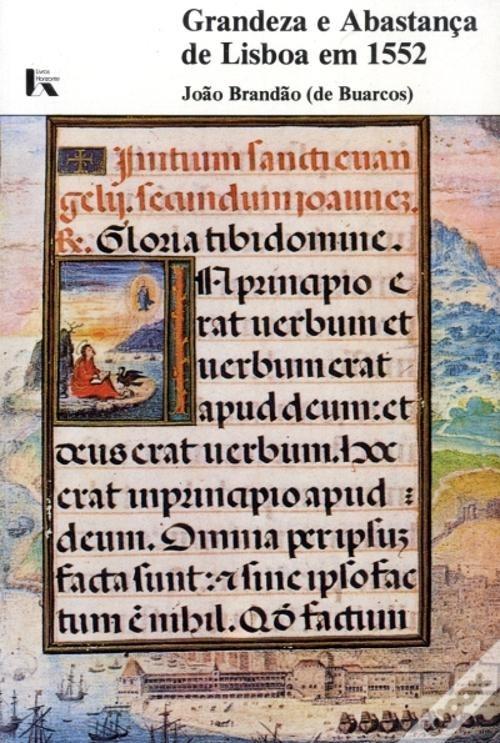 Grandeza e Abastança
de Lisboa em 1552
João Brandão (de Buarcos)
Livros
Horizonte
Initium sancti euan
gelij. secundum joannez.
R. Gloria tibi domine.
In principio e
rat uerbum et
uerbum erat
apud deum: et
deus erat uerbum. hoc
erat in principio apud :
deum. Omnia per ipsuz
facta sunt: & sine ipso fac
tum ē nihil. Qō factum